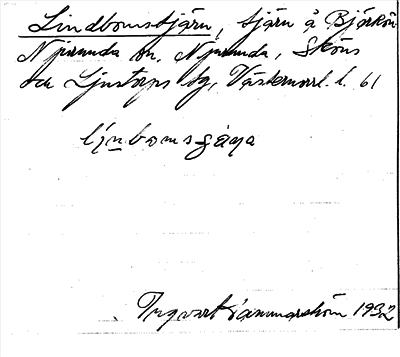 Lindbomstjärn, tjärn å Björkön
Njurunda sn, Njurunda, Sköns
och Ljustorps tg, Västernorrl. l. 61
Ingvart Hammarström 1932